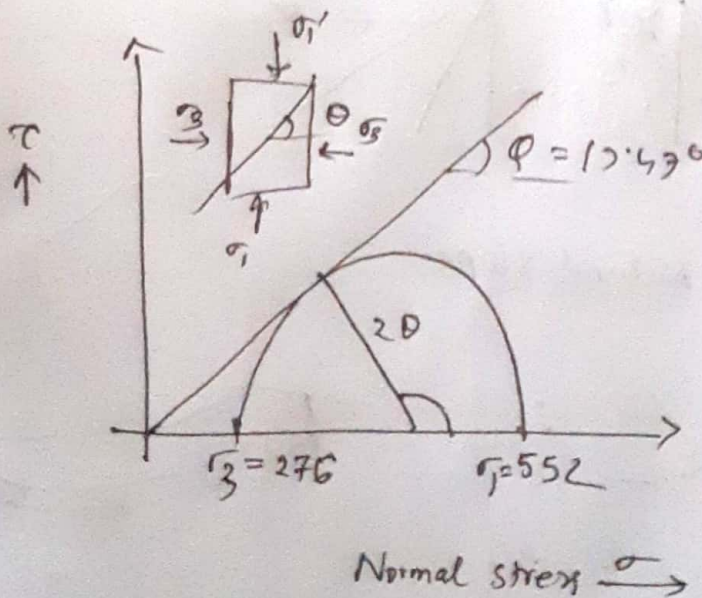 σ₁'
τ
↑
σ₃ → θ σ₃ ←
σ₁
φ =
2θ
σ₃ = 276 σ₁ = 552
Normal stress σ →